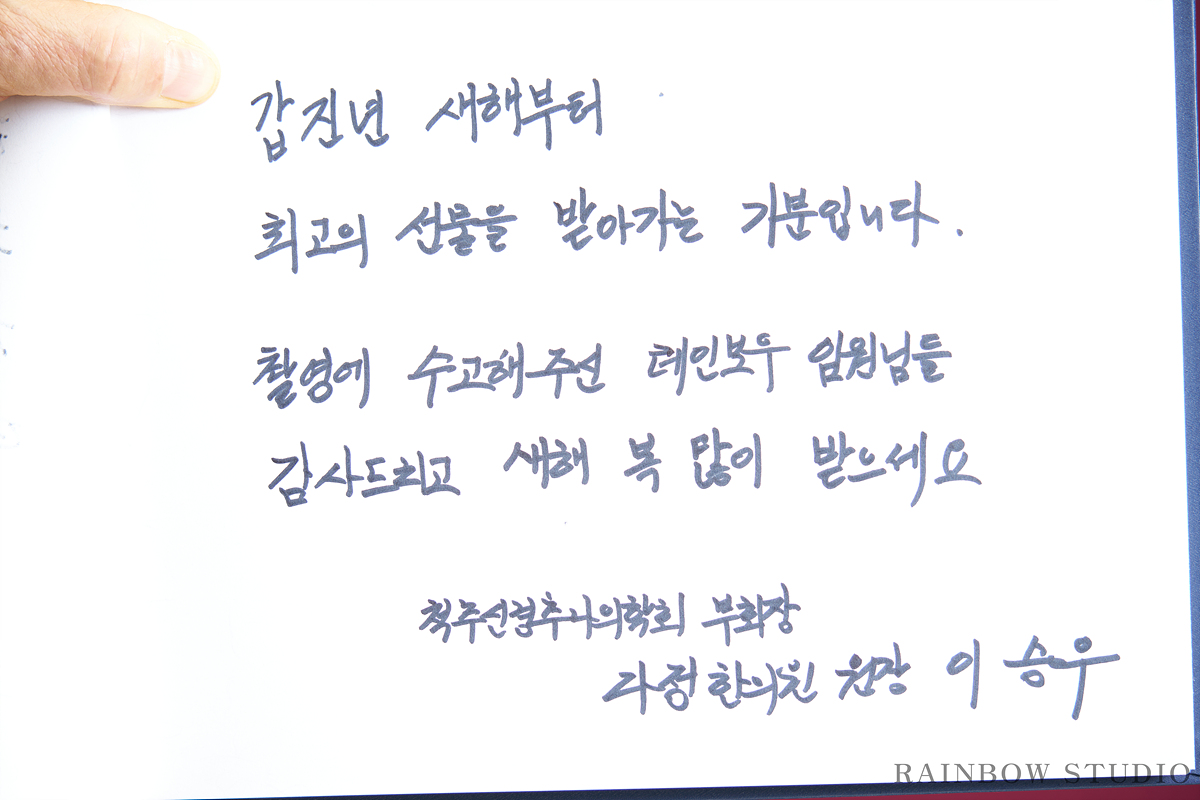 갑진년 새해부터
최고의 선물을 받아가는 기분입니다.
촬영에 수고해주신 레인보우 임원님들
감사드리고 새해 복 많이 받으세요
척추신경추나의학회 부회장
다정한의원 원장 이승우
RAINBOW STUDIO